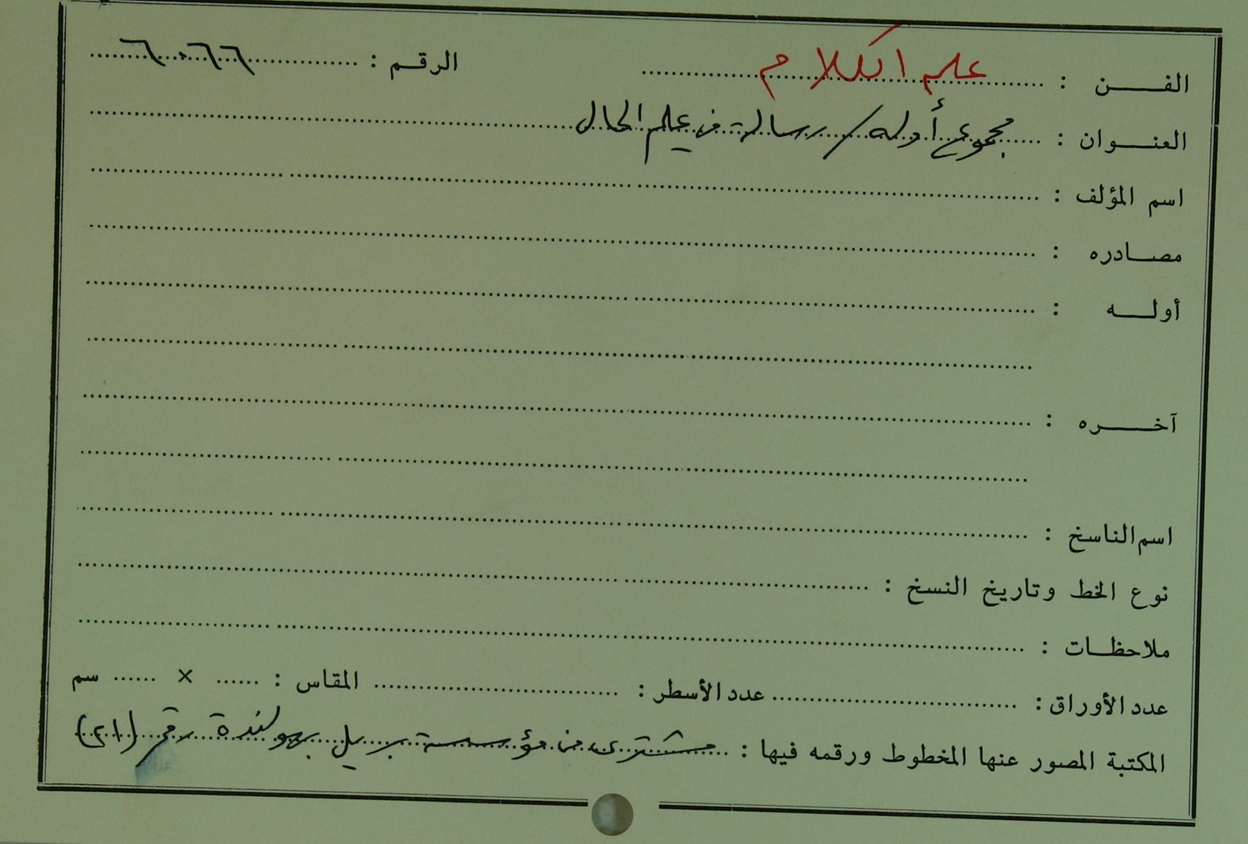 الفن : علم الكلام الرقم : ٦٠٦٦
العنوان : مجموع أوله / رسالة في علم الحال
اسم المؤلف :
مصادره :
أوله :
آخره :
اسم الناسخ :
نوع الخط وتاريخ النسخ :
ملاحظات :
عدد الأوراق : عدد الأسطر : المقاس : × سم
المكتبة المصور عنها المخطوط ورقمه فيها : مشترى من مؤسسة بريل بهولندة رقم (٢١)